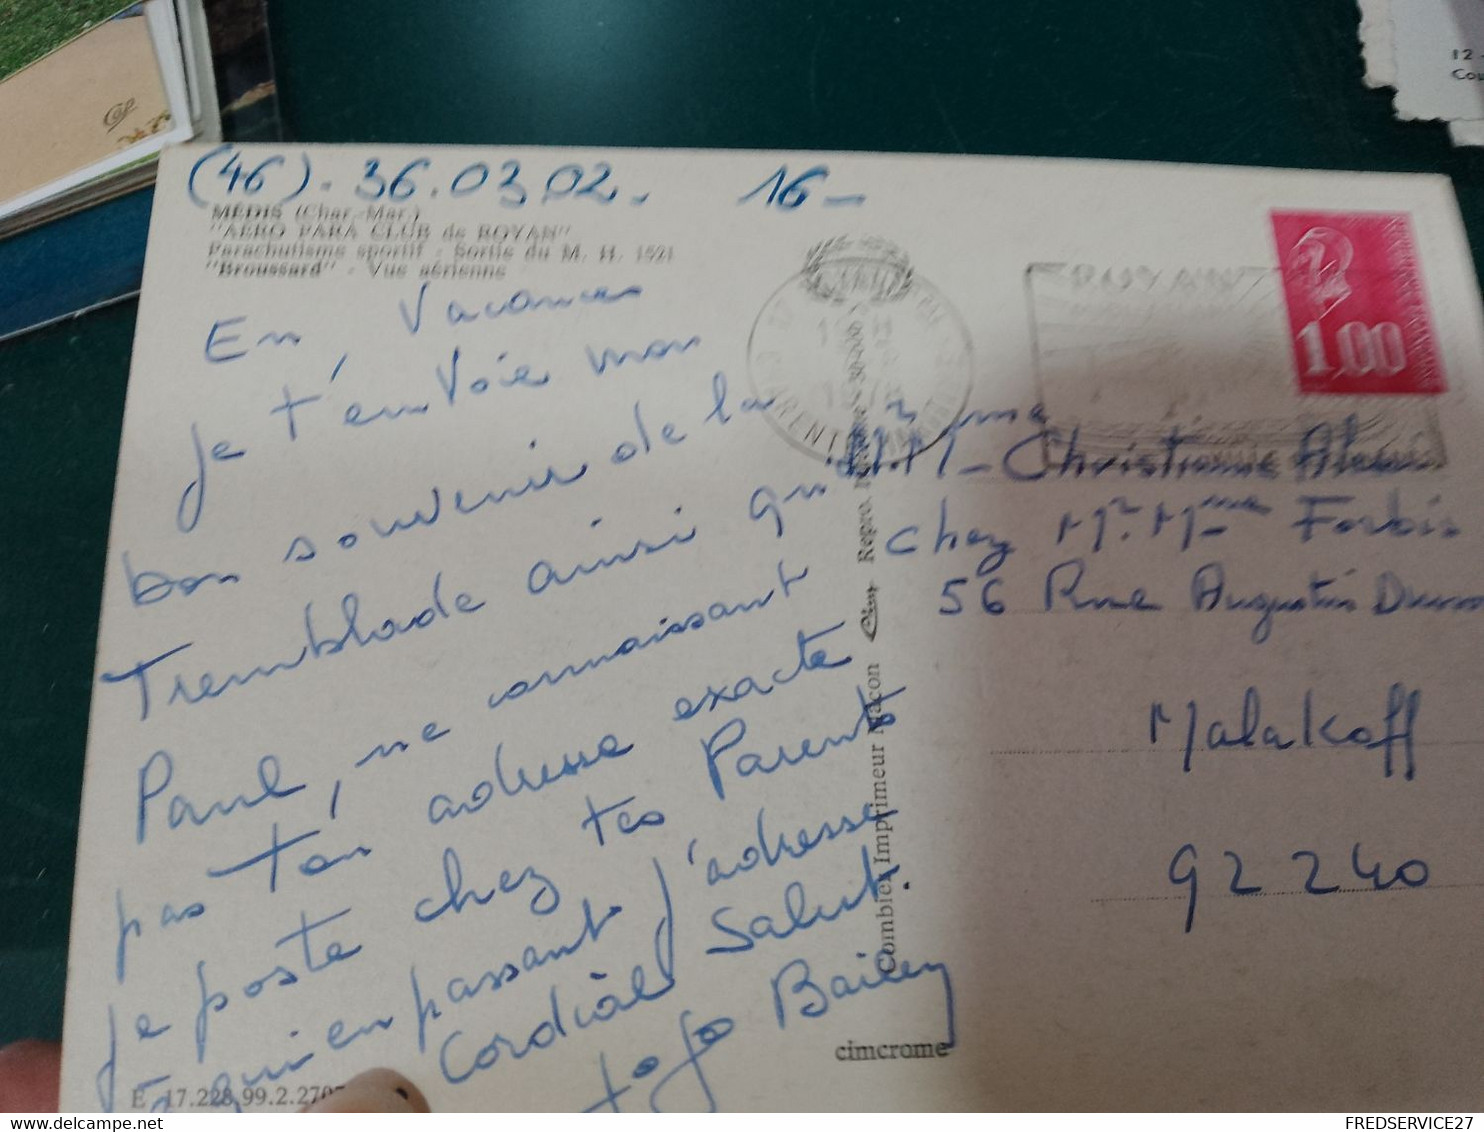 (46). 36.03.02. 16-
MÉDIS (Char.-Mar.)
"AÉRO PARA CLUB de ROYAN"
Parachutisme sportif - Sortie du M. H. 1521
"Broussard" - Vue aérienne
En Vacances
je t'envoie mon
bon souvenir de la
Tremblade ainsi qu'à
Paul, ne connaissant
pas ton adresse exacte
je poste chez tes Parents
à qui en passant j'adresse
Cordiàl Salut.
Jojo Bailey
E 17.228.99.2.2707
cimcrome
Combier Imprimeur Macon
Cim
Repro.
ROYAN
1,00
M. Mme Christianne
chez Mr. Mme Forbis
56 Rue Augustin
Malakoff
92240
12
Cou
FREDSERVICE27